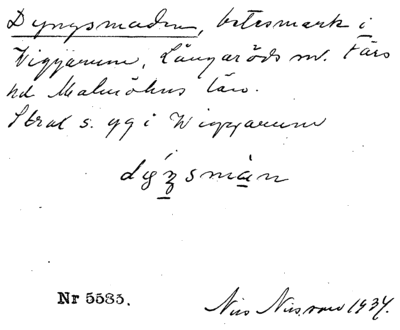 Dyngsmaden, betesmark i
Wiggarum, Långaröds sn. Färs
hd Malmöhus län.
s. 99 i Wiggarum
Nr 5583.
Nils Nilsson 1934.